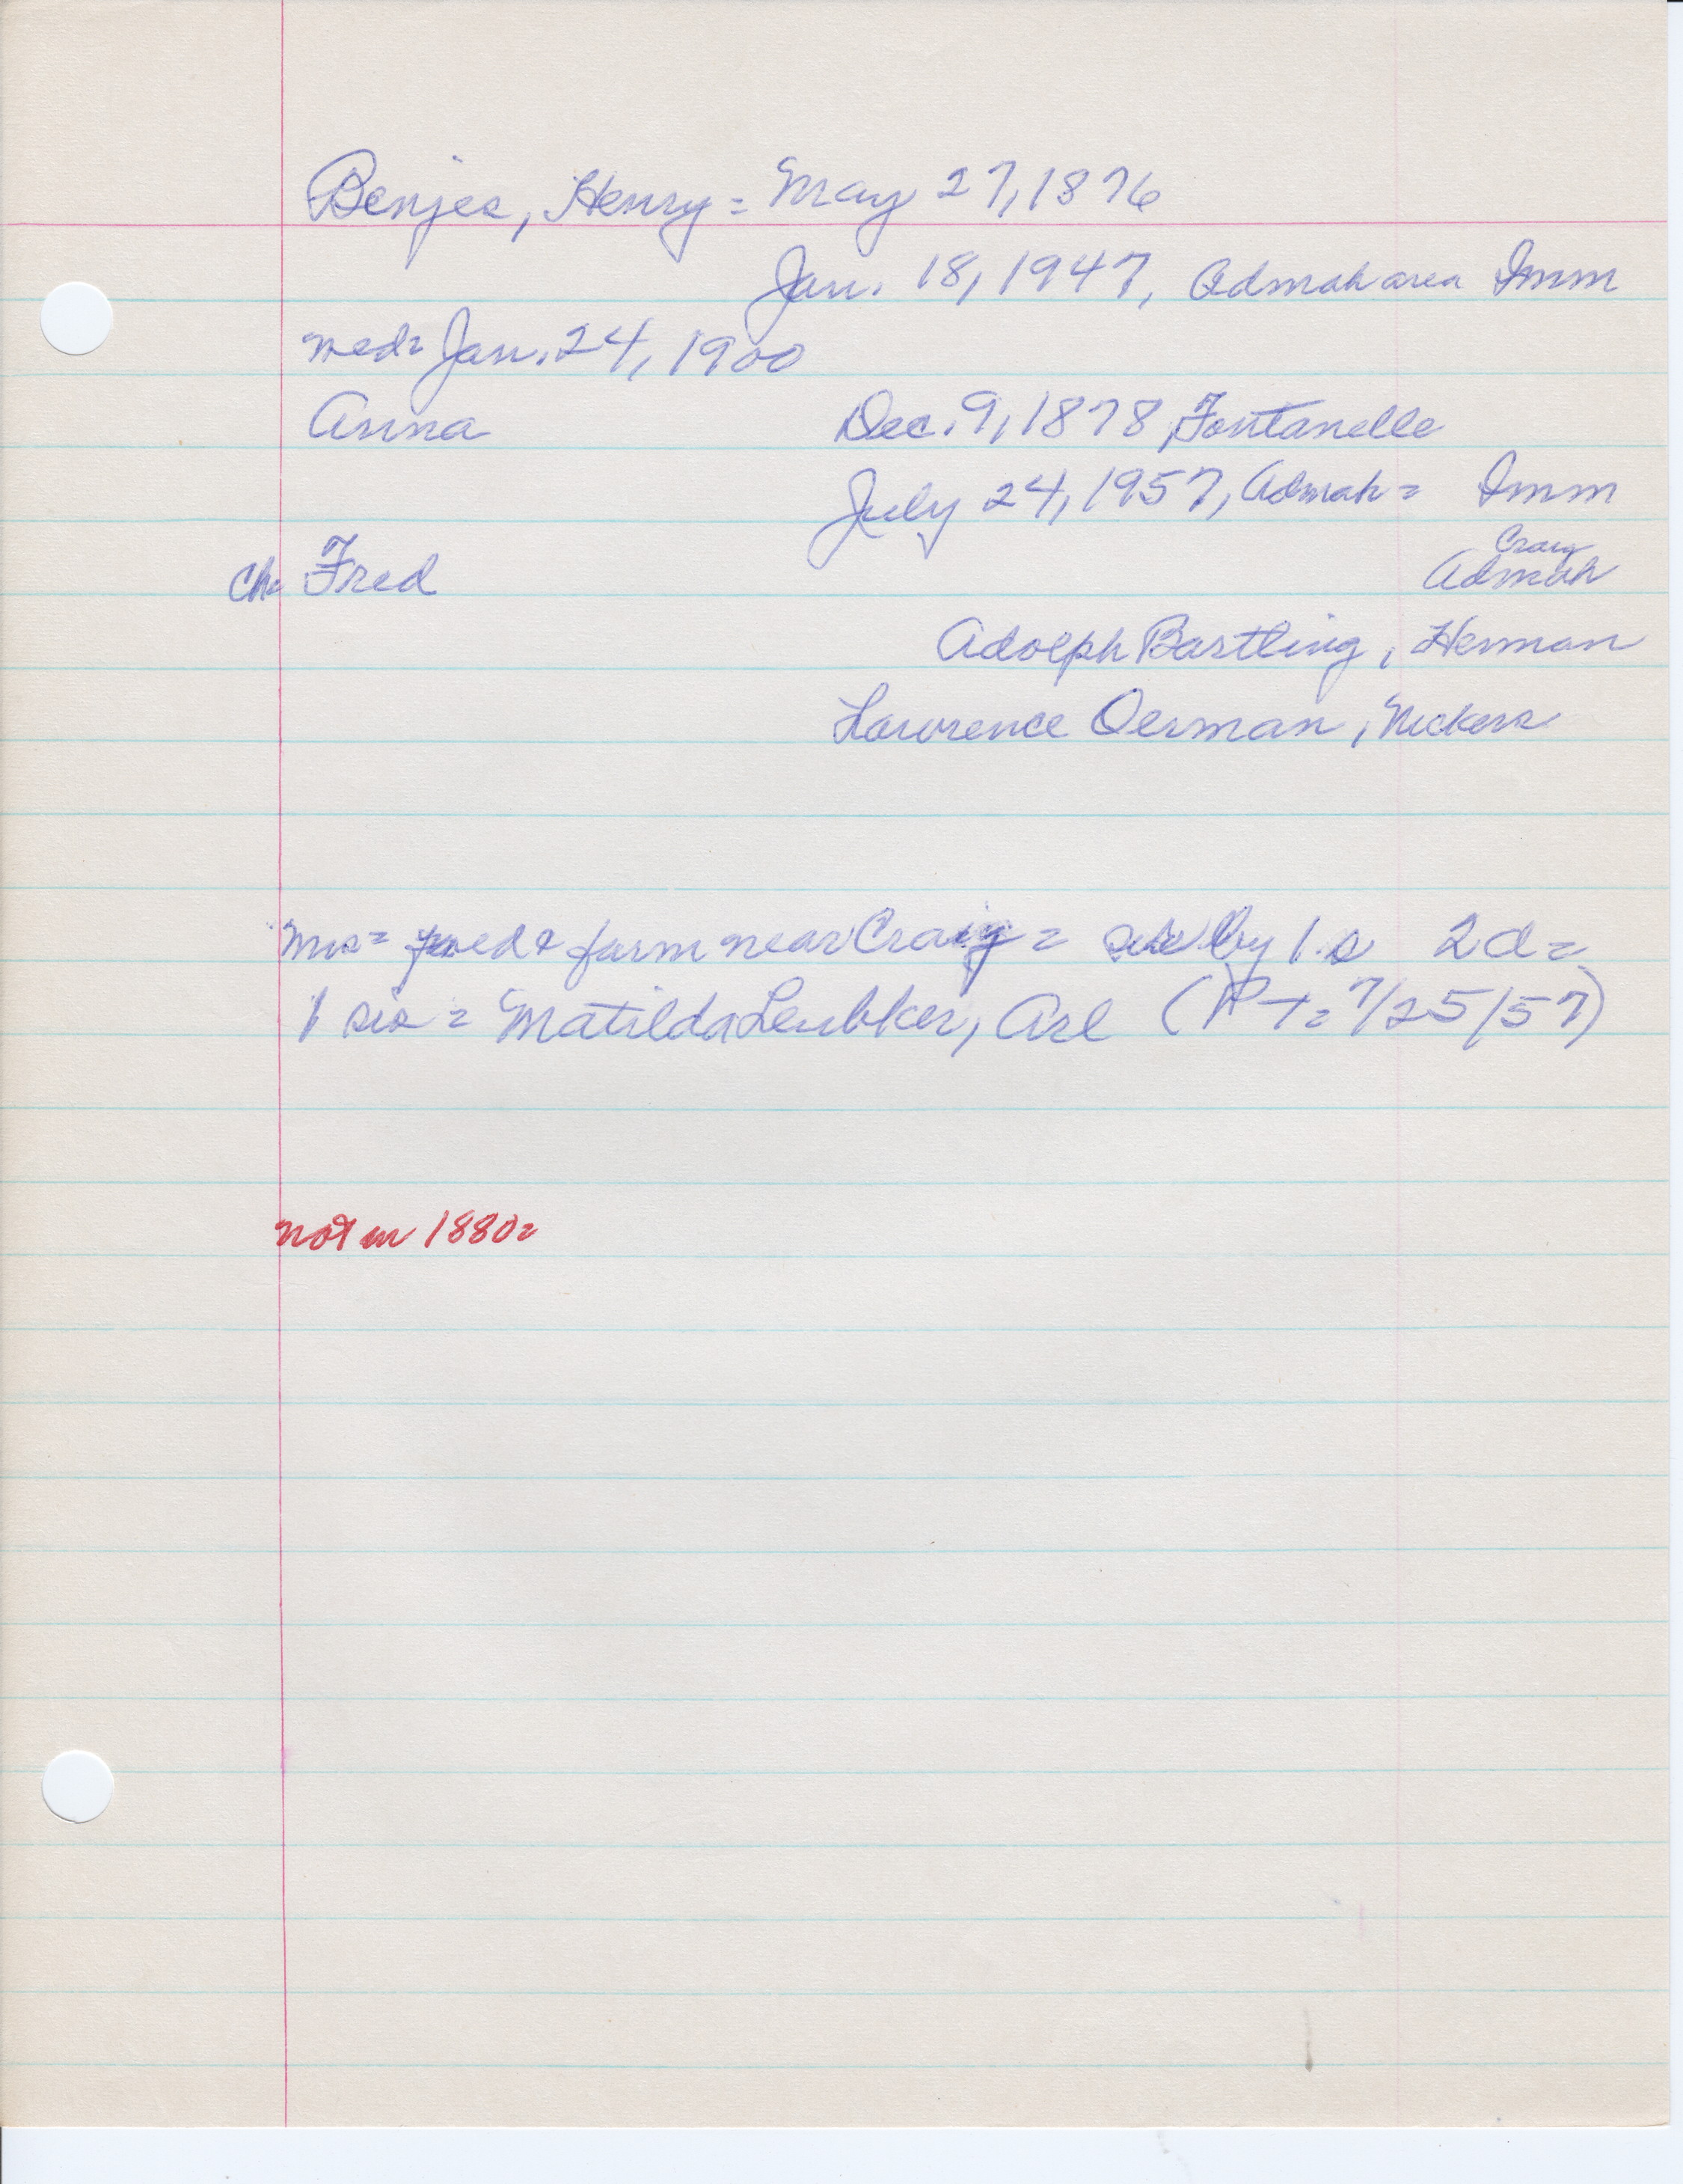 Benjes, Henry = May 27, 1876
Jan. 18, 1947, Admah area Imm
med= Jan. 24, 1900
Anna Dec. 9, 1878, Fontanelle
July 24, 1957, Admah = Imm
Craig
Ch= Fred Admah
Adolph Bartling, Herman
Lawrence Oerman, Nickers
Mrs= farm near Craig = by 1 s 2d=
1 sis = Matilda Leubker, Arl (P-T= 7/25/57)
not in 1880=